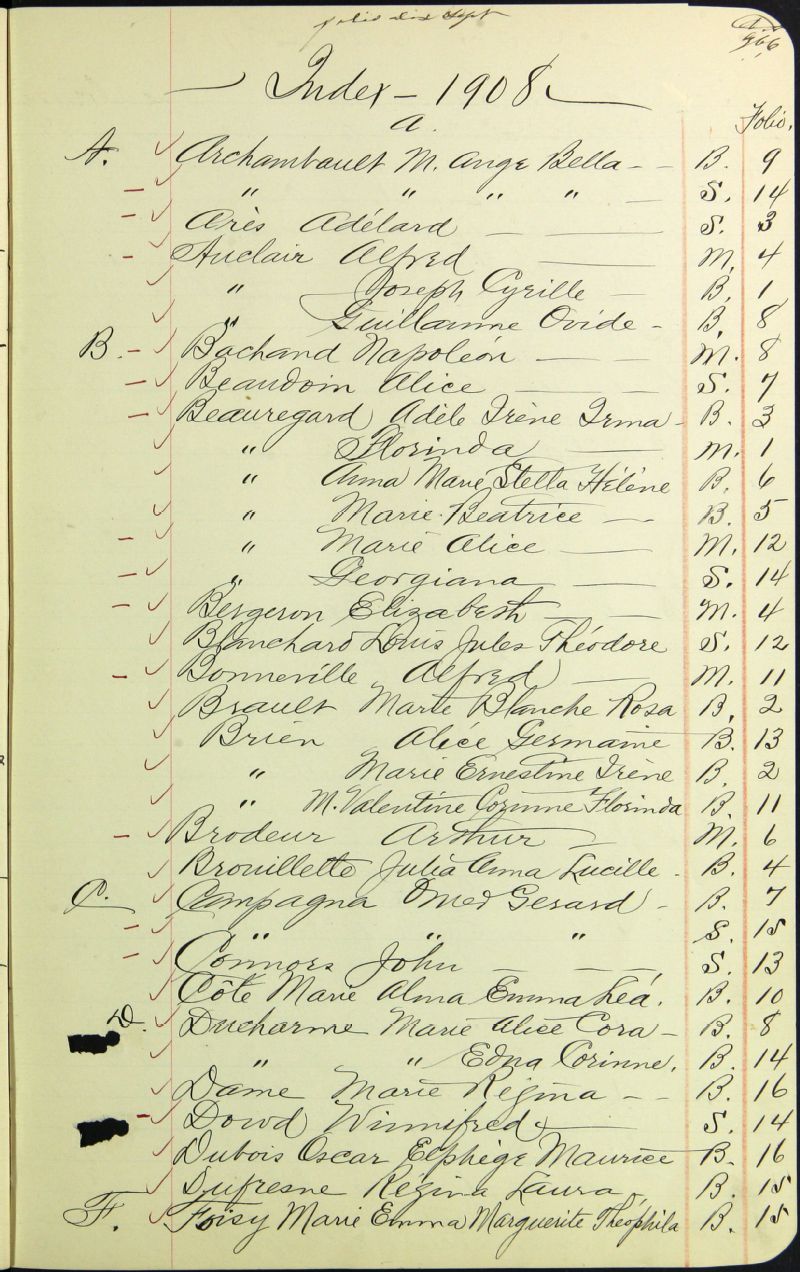 folio dix sept
966
Index - 1908
Folio.
a.
A. Archambault M. Ange Bella - - B. 9
" " " " - S. 14
Arès Adélard - - S. 3
Auclair Alfred - M. 4
" Joseph Cyrille - B. 1
" Guillaume Ovide - B. 8
B. Bachand Napoléon - - M. 8
Beaudoin Alice - - S. 7
Beauregard Adèle Irène Irma - B. 3
" Florinda - M. 1
" Anna Marie Stella Hélène B. 6
" Marie Beatrice - B. 5
" Marie Alice - M. 12
" Georgiana - S. 14
Bergeron Elizabeth - - M. 4
Blanchard Louis Jules Théodore S. 12
Bonneville Alfred - M. 11
Brault Marie Blanche Rosa B. 2
Brien Alice Germaine B. 13
" Marie Ernestine Irène B. 2
" M. Valentine Corinne Florinda B. 11
Brodeur Arthur - M. 6
Brouillette Julia Anna Lucille - B. 4
C. Campagna Omer Gerard - B. 7
" " " S. 15
Connors John - - - S. 13
Côté Marie Alma Emma Léa. B. 10
D. Ducharme Marie Alice Cora - B. 8
" " Edna Corinne. B. 14
Dame Marie Regina - - B. 16
Dowd Winnifred - S. 14
Dubois Oscar Elphège Maurice B. 16
Dufresne Regina Laura, B. 15
F. Foisy Marie Emma Marguerite Théophila B. 15